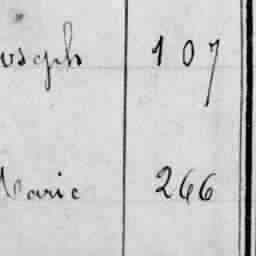 oseph 107
Marie 266